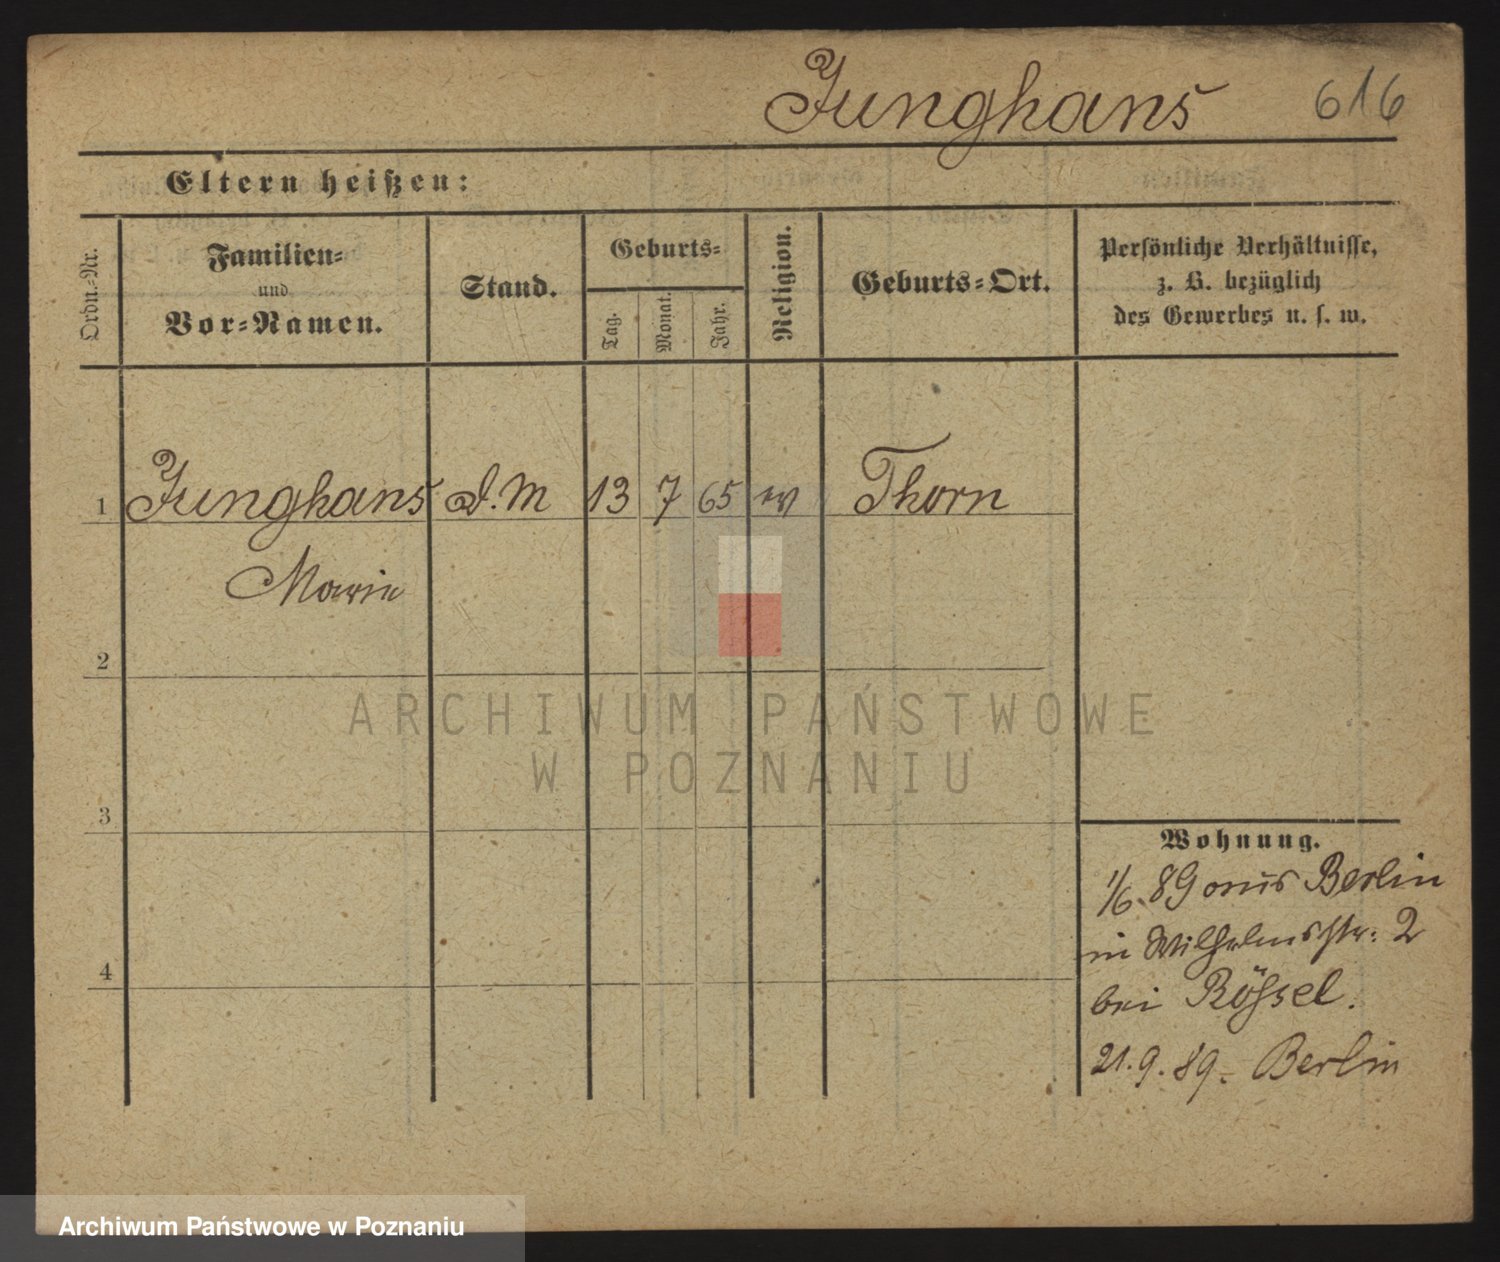 Junghans 616
Eltern heißen:
Ordn.-Nr.
Familien-
und
Vor-Namen.
Stand.
Geburts-
Tag.
Monat.
Jahr.
Religion.
Geburts-Ort.
Persönliche Verhältnisse,
z. B. bezüglich
des Gewerbes u. s. w.
1 Junghans D. M 13 7 65 ev Thorn
Marie
2
3
4
Wohnung.
1/6. 89 aus Berlin
in Wilhelmsstr. 2
bei Rößel.
21.9.89. Berlin
ARCHIWUM PAŃSTWOWE
W POZNANIU
Archiwum Państwowe w Poznaniu